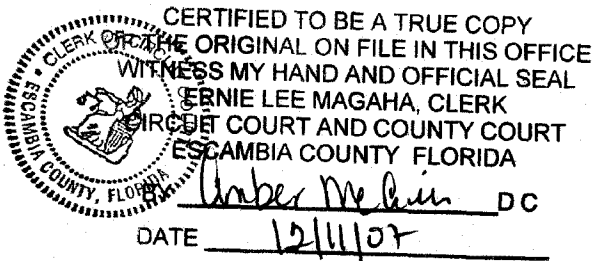 CERTIFIED TO BE A TRUE COPY
OF THE ORIGINAL ON FILE IN THIS OFFICE
WITNESS MY HAND AND OFFICIAL SEAL
ERNIE LEE MAGAHA, CLERK
CIRCUIT COURT AND COUNTY COURT
ESCAMBIA COUNTY FLORIDA
BY Amber DC
DATE 12/11/07
CLERK OF
ESCAMBIA COUNTY, FLORIDA